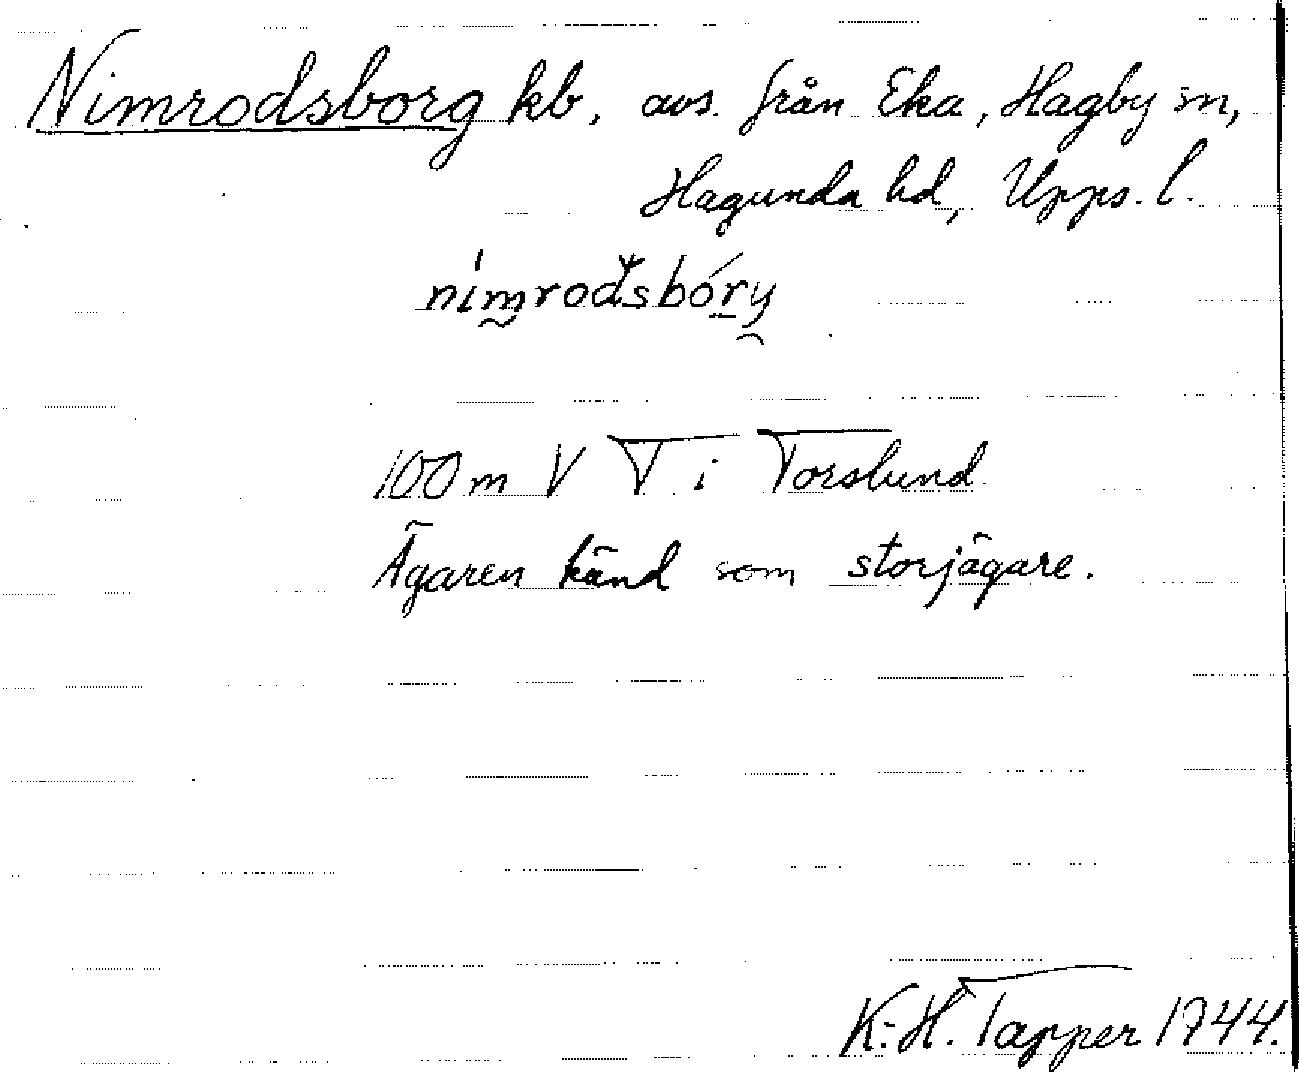 Nimrodsborg kb, avs. från Eka, Hagby sn,
Hagunda hd, Upps. l.
nim̰rodsbóry
100 m V T i Torslund
Ägaren känd som storjägare.
K.-H. Tapper 1944.